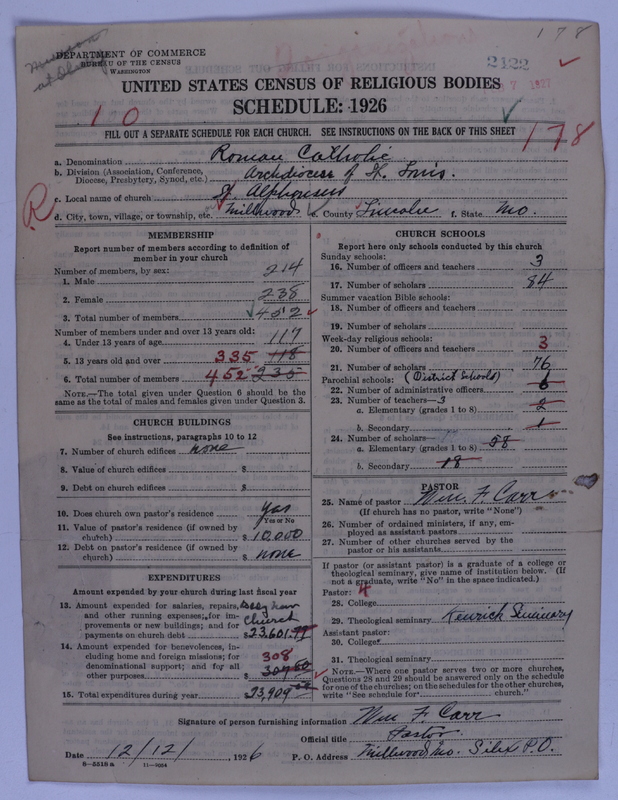 178
DEPARTMENT OF COMMERCE
BUREAU OF THE CENSUS
WASHINGTON
Mission at
2122
7 1927
UNITED STATES CENSUS OF RELIGIOUS BODIES
SCHEDULE: 1926
10
FILL OUT A SEPARATE SCHEDULE FOR EACH CHURCH. SEE INSTRUCTIONS ON THE BACK OF THIS SHEET
178
a. Denomination Roman Catholic
b. Division (Association, Conference, Diocese, Presbytery, Synod, etc.) Archdiocese of St. Louis.
R
c. Local name of church St. Alphonsus
d. City, town, village, or township, etc. Millwood e. County Lincoln f. State Mo.
MEMBERSHIP
Report number of members according to definition of
member in your church
Number of members, by sex:
1. Male 214
2. Female 238
3. Total number of members 452
Number of members under and over 13 years old:
4. Under 13 years of age 117
5. 13 years old and over 335 118
6. Total number of members 452 235
NOTE.—The total given under Question 6 should be the
same as the total of males and females given under Question 3.
CHURCH BUILDINGS
See instructions, paragraphs 10 to 12
7. Number of church edifices none
8. Value of church edifices $
9. Debt on church edifices $
10. Does church own pastor's residence? Yes
Yes or No
11. Value of pastor's residence (if owned by
church) $ 10,000
12. Debt on pastor's residence (if owned by
church) $ none
EXPENDITURES
Amount expended by your church during last fiscal year
13. Amount expended for salaries, repairs,
and other running expenses; for im-
provements or new buildings; and for
payments on church debt new Church $ 23,601.77
14. Amount expended for benevolences, in-
cluding home and foreign missions; for
denominational support; and for all
other purposes 308 $
15. Total expenditures during year 23,909
CHURCH SCHOOLS
Report here only schools conducted by this church
Sunday schools:
16. Number of officers and teachers 3
17. Number of scholars 84
Summer vacation Bible schools:
18. Number of officers and teachers
19. Number of scholars
Week-day religious schools:
20. Number of officers and teachers 3
21. Number of scholars 76
Parochial schools: (District Schools)
22. Number of administrative officers
23. Number of teachers— 3
a. Elementary (grades 1 to 8) 2
b. Secondary 1
24. Number of scholars—
a. Elementary (grades 1 to 8) 58
b. Secondary 18
PASTOR
25. Name of pastor Wm. F. Carr
(If church has no pastor, write "None")
26. Number of ordained ministers, if any, em-
ployed as assistant pastors
27. Number of other churches served by the
pastor or his assistants
If pastor (or assistant pastor) is a graduate of a college or
theological seminary, give name of institution below. (If
not a graduate, write "No" in the space indicated.)
Pastor: 4
28. College
29. Theological seminary Kenrick Seminary
Assistant pastor:
30. College
31. Theological seminary
NOTE.—Where one pastor serves two or more churches,
Questions 28 and 29 should be answered only on the schedule
for one of the churches; on the schedules for the other churches,
write "See schedule for church."
Signature of person furnishing information Wm. F. Carr
Official title Pastor
Date 12/12/, 1926 P. O. Address Millwood Mo. Silex P.O.
8—5518a 11—9064